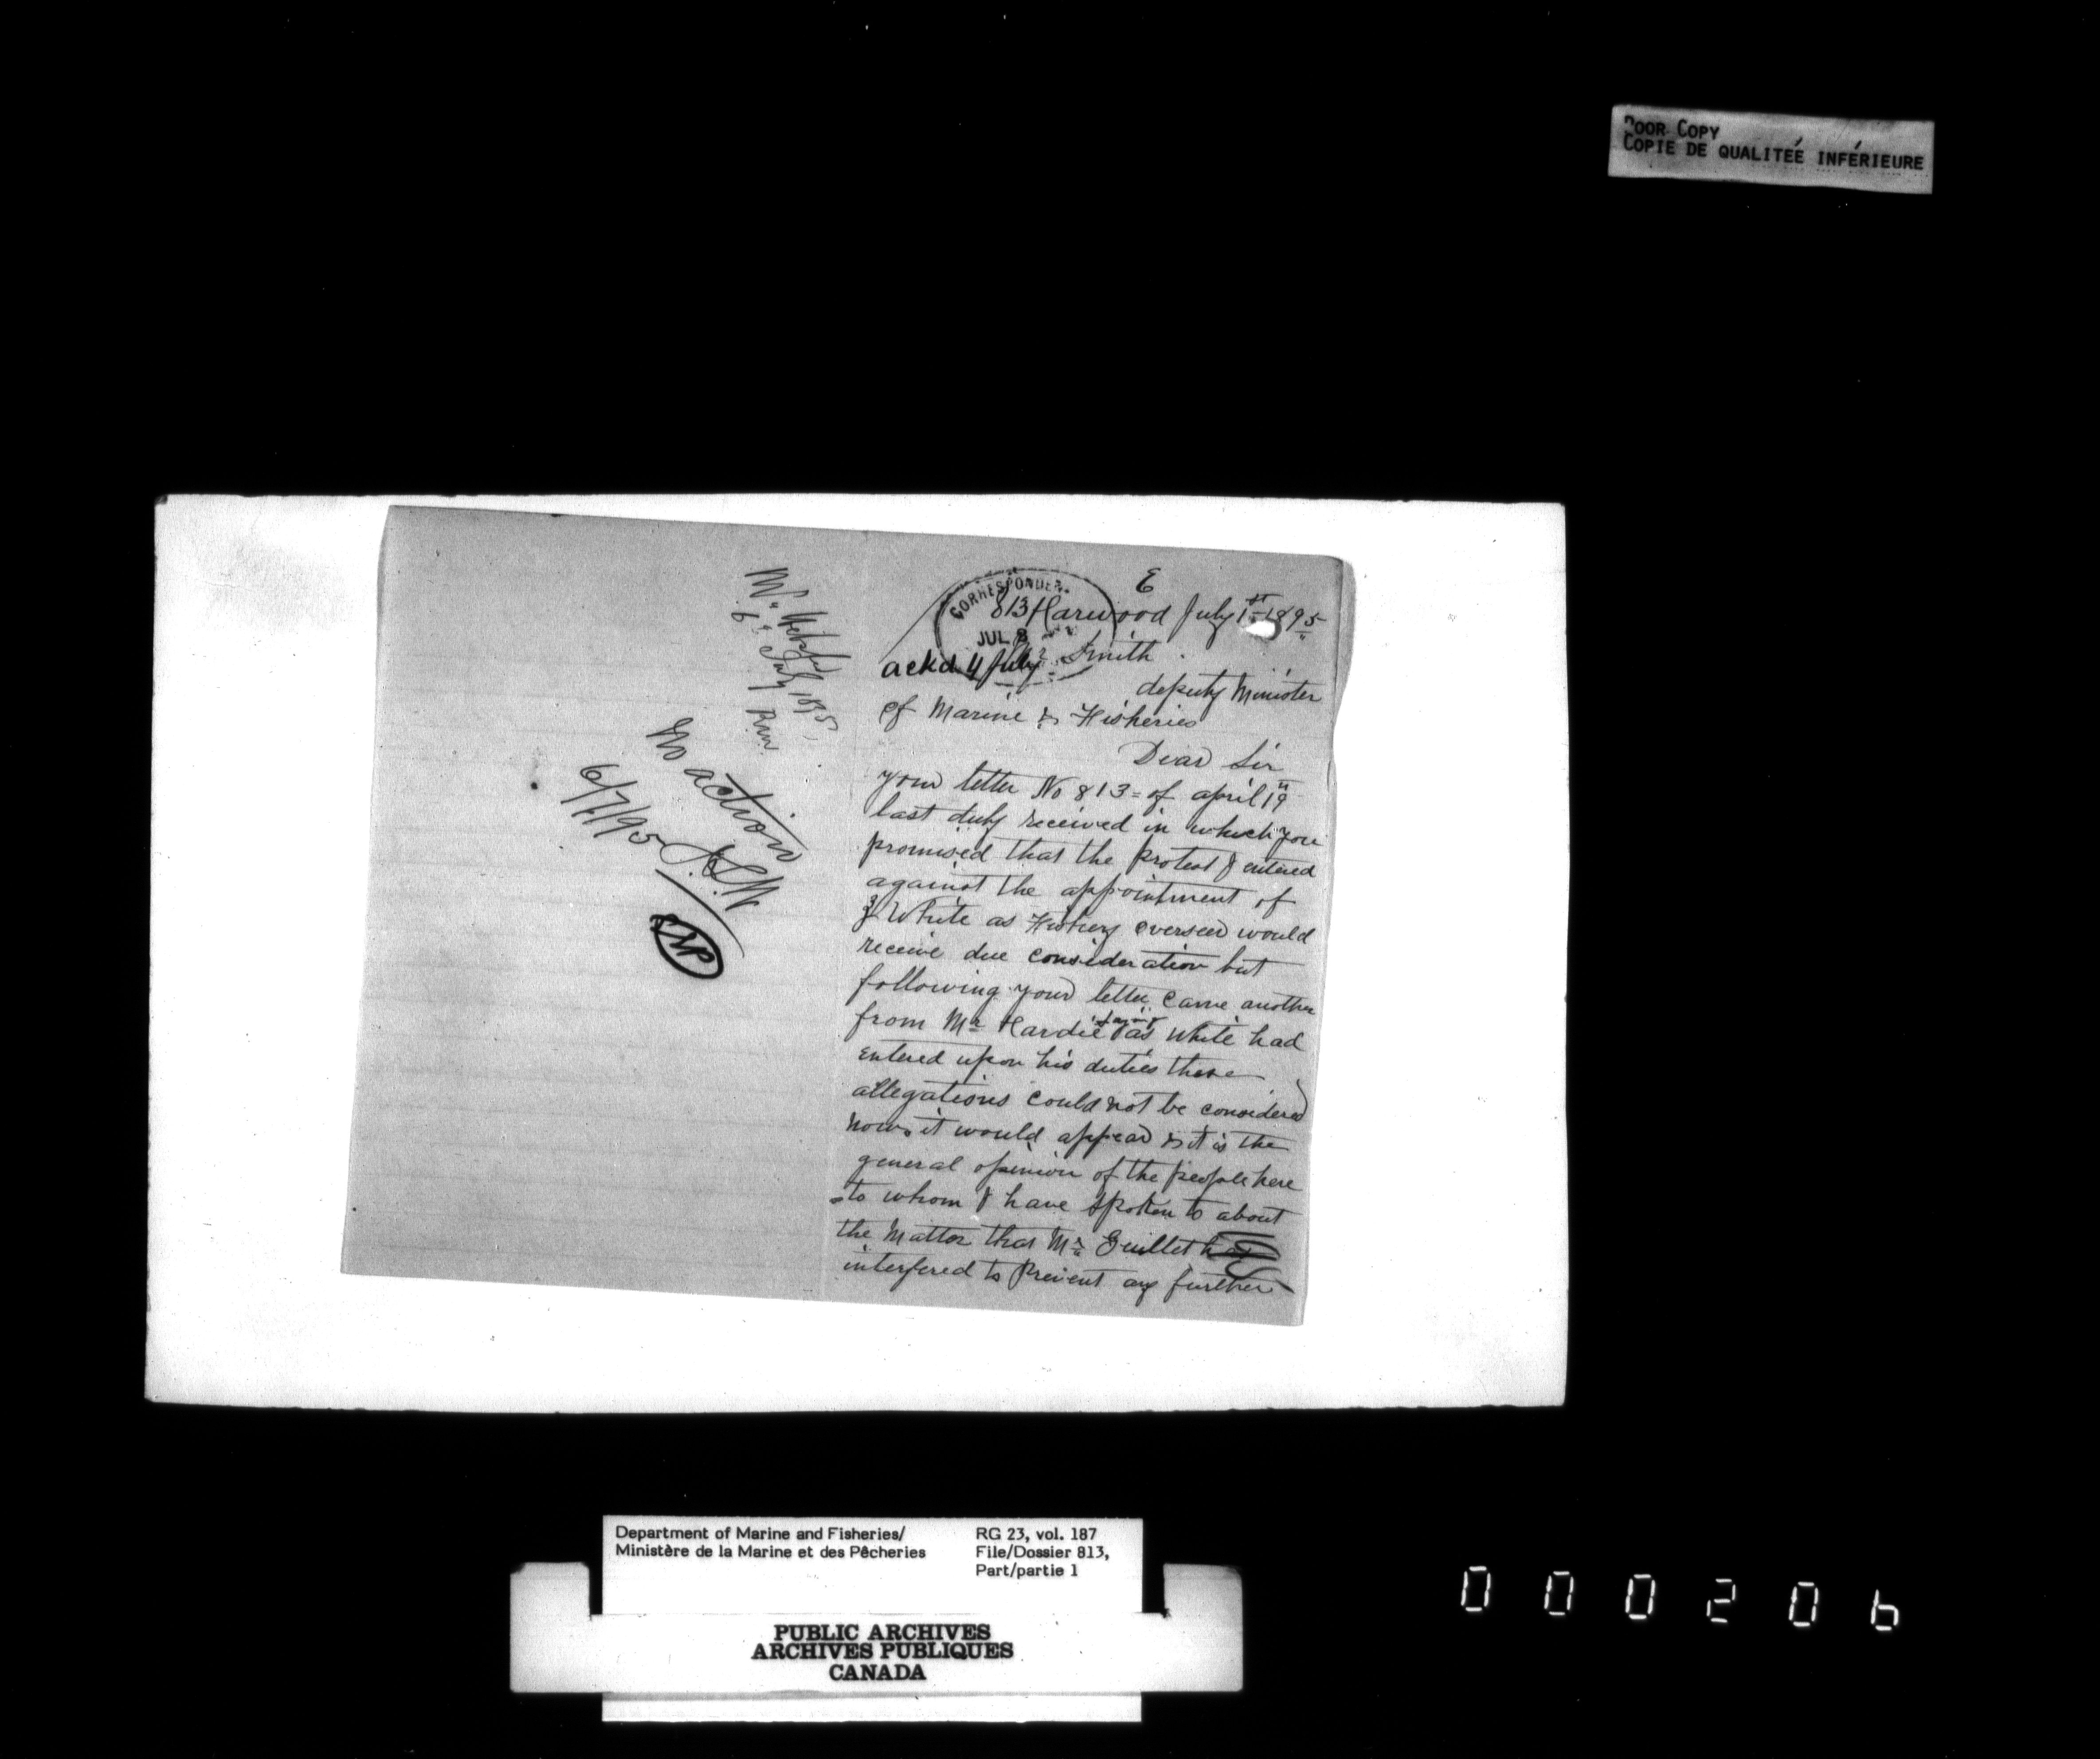 POOR COPY
COPIE DE QUALITEÉ INFÉRIEURE
E
CORRESPONDEN
813 Harwood July 1st 1895
JUL 3
ackd 4 July
Mr Smith
deputy Minister
of Marine & Fisheries
Dear Sir
your letter No 813 = of april 19th
last duly received in which you
promised that the protest I entered
against the appointment of
J White as Fishery overseer would
receive due consideration but
following your letter came another
from Mr Hardie saying as White had
entered upon his duties these
allegations could not be considered
now, it would appear & it is the
general opinion of the people here
to whom I have spoken to about
the Matter that Mr Guillet has
interfered to prevent any further
6th July 1895
No action
6/7/95
Department of Marine and Fisheries/
Ministère de la Marine et des Pêcheries
RG 23, vol. 187
File/Dossier 813,
Part/partie 1
PUBLIC ARCHIVES
ARCHIVES PUBLIQUES
CANADA
000206